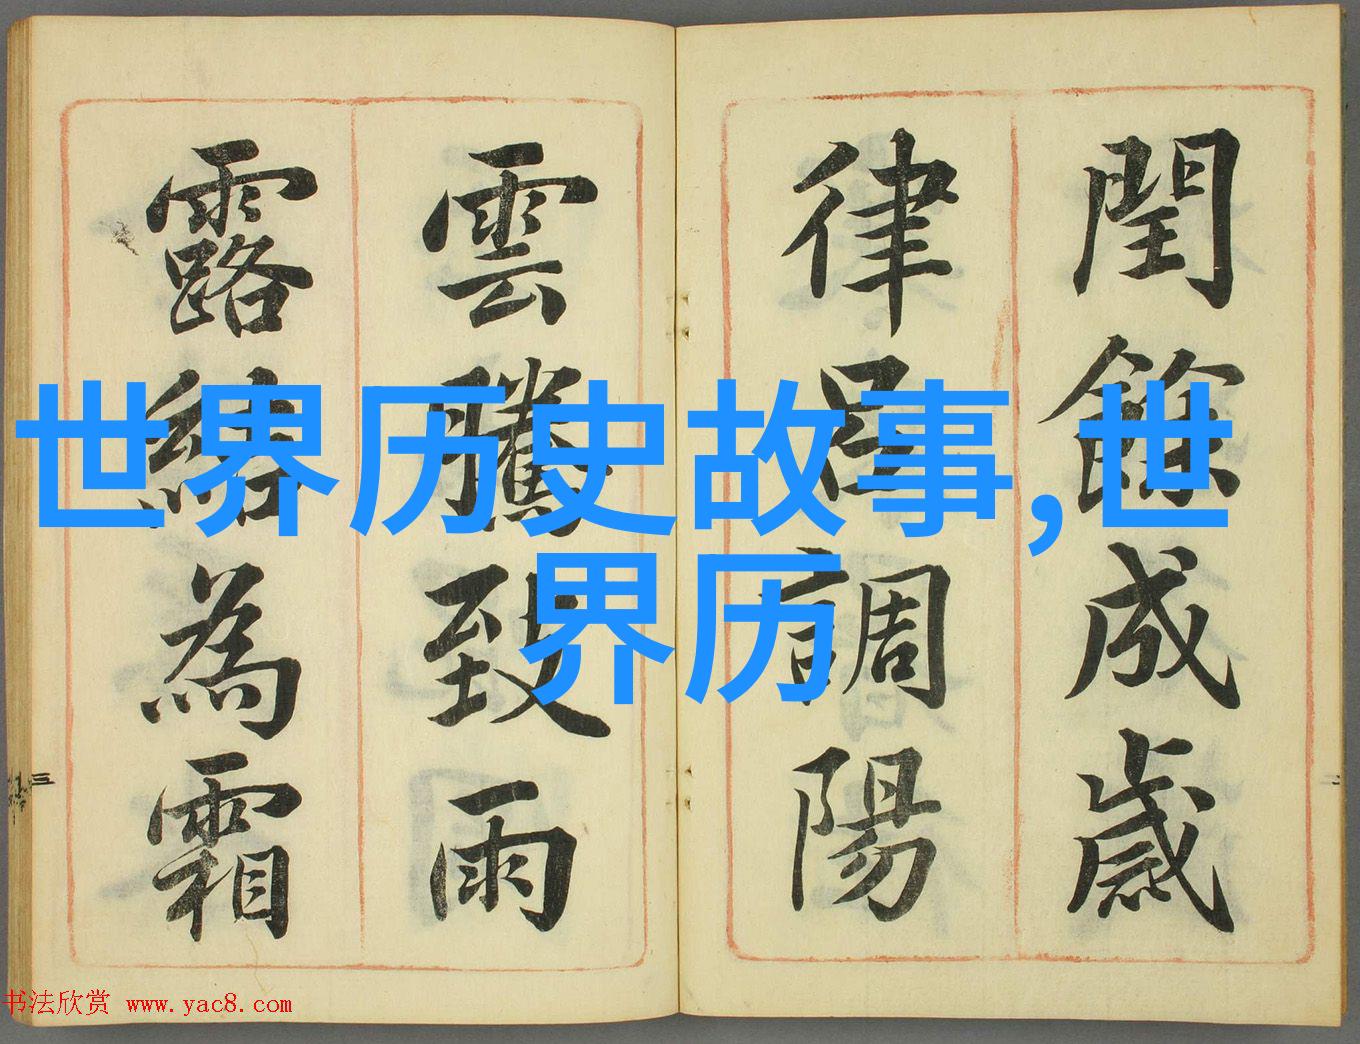 閏餘成歲
律呂調陽
雲騰致雨
露結為霜
世界历史故事,世
界历
三
书法欣赏 www.yac8.com